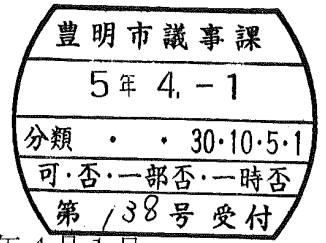 豊明市議事課
5年 4. -1
分類 ・ ・ 30・10・5・1
可・否・一部否・一時否
第 138 号 受付
年4月1日